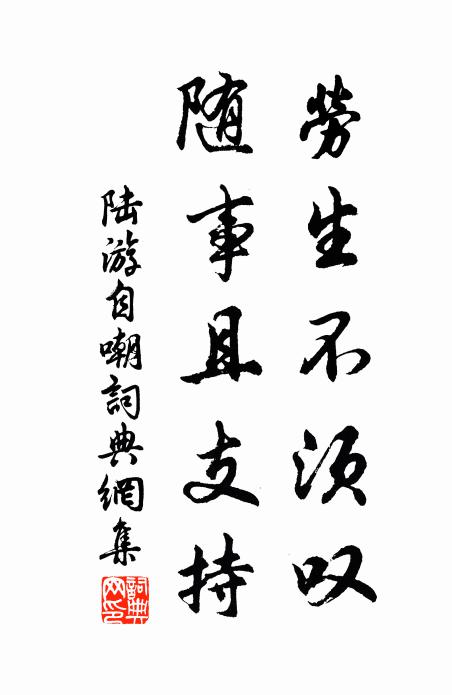 勞生不須叹
随事且支持
陆游自嘲詞典網集
詞典网印